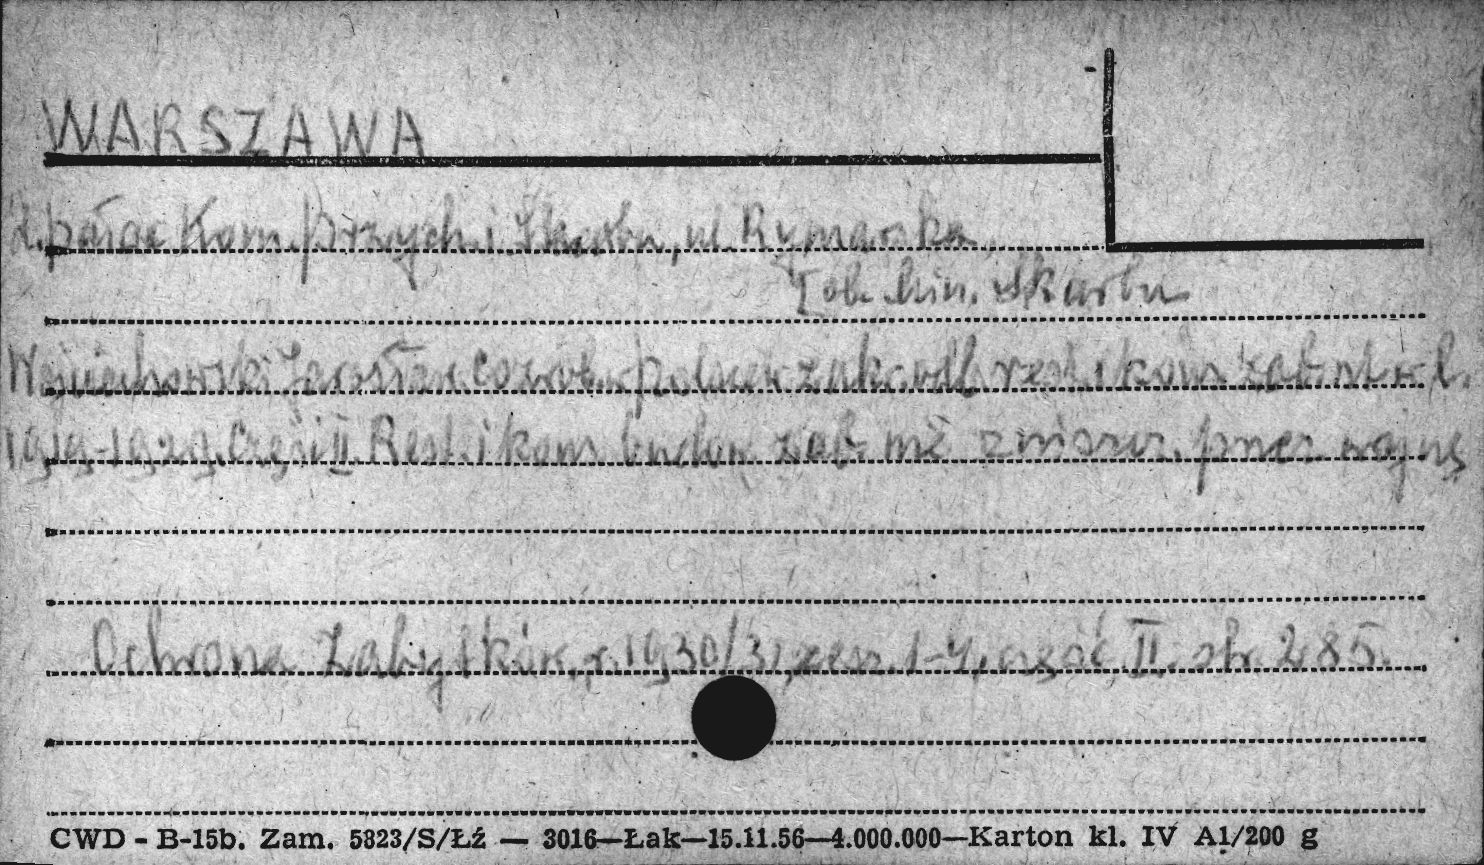 WARSZAWA
d. pałac Kom. Przych. i Skarbu, ul. Rymarska
[ob. Min. Skarbu
Wojciechowski Jarosław, Co zrob. w Polsce w zakr. odb. rest. i kons. zab. szt. w l.
1919-1929. Część II. Rest. i kons. budow. zab. niż. zniszcz. przez wojnę
Ochrona Zabytków, r. 1930/31, zesz. 1-4, część II. str. 285.
CWD - B-15b. Zam. 5823/S/Łź — 3016—Łak—15.11.56—4.000.000—Karton kl. IV A1/200 g